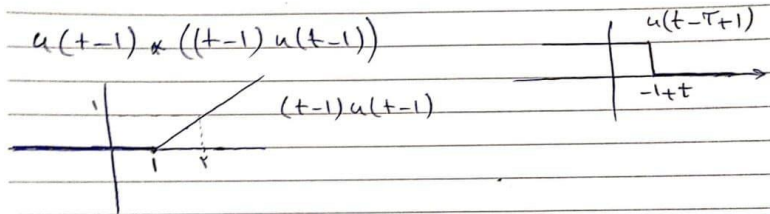 u(t-1) * ((t-1) u(t-1))
u(t-τ+1)
-1+t
(t-1)u(t-1)
۱
۱ ۲